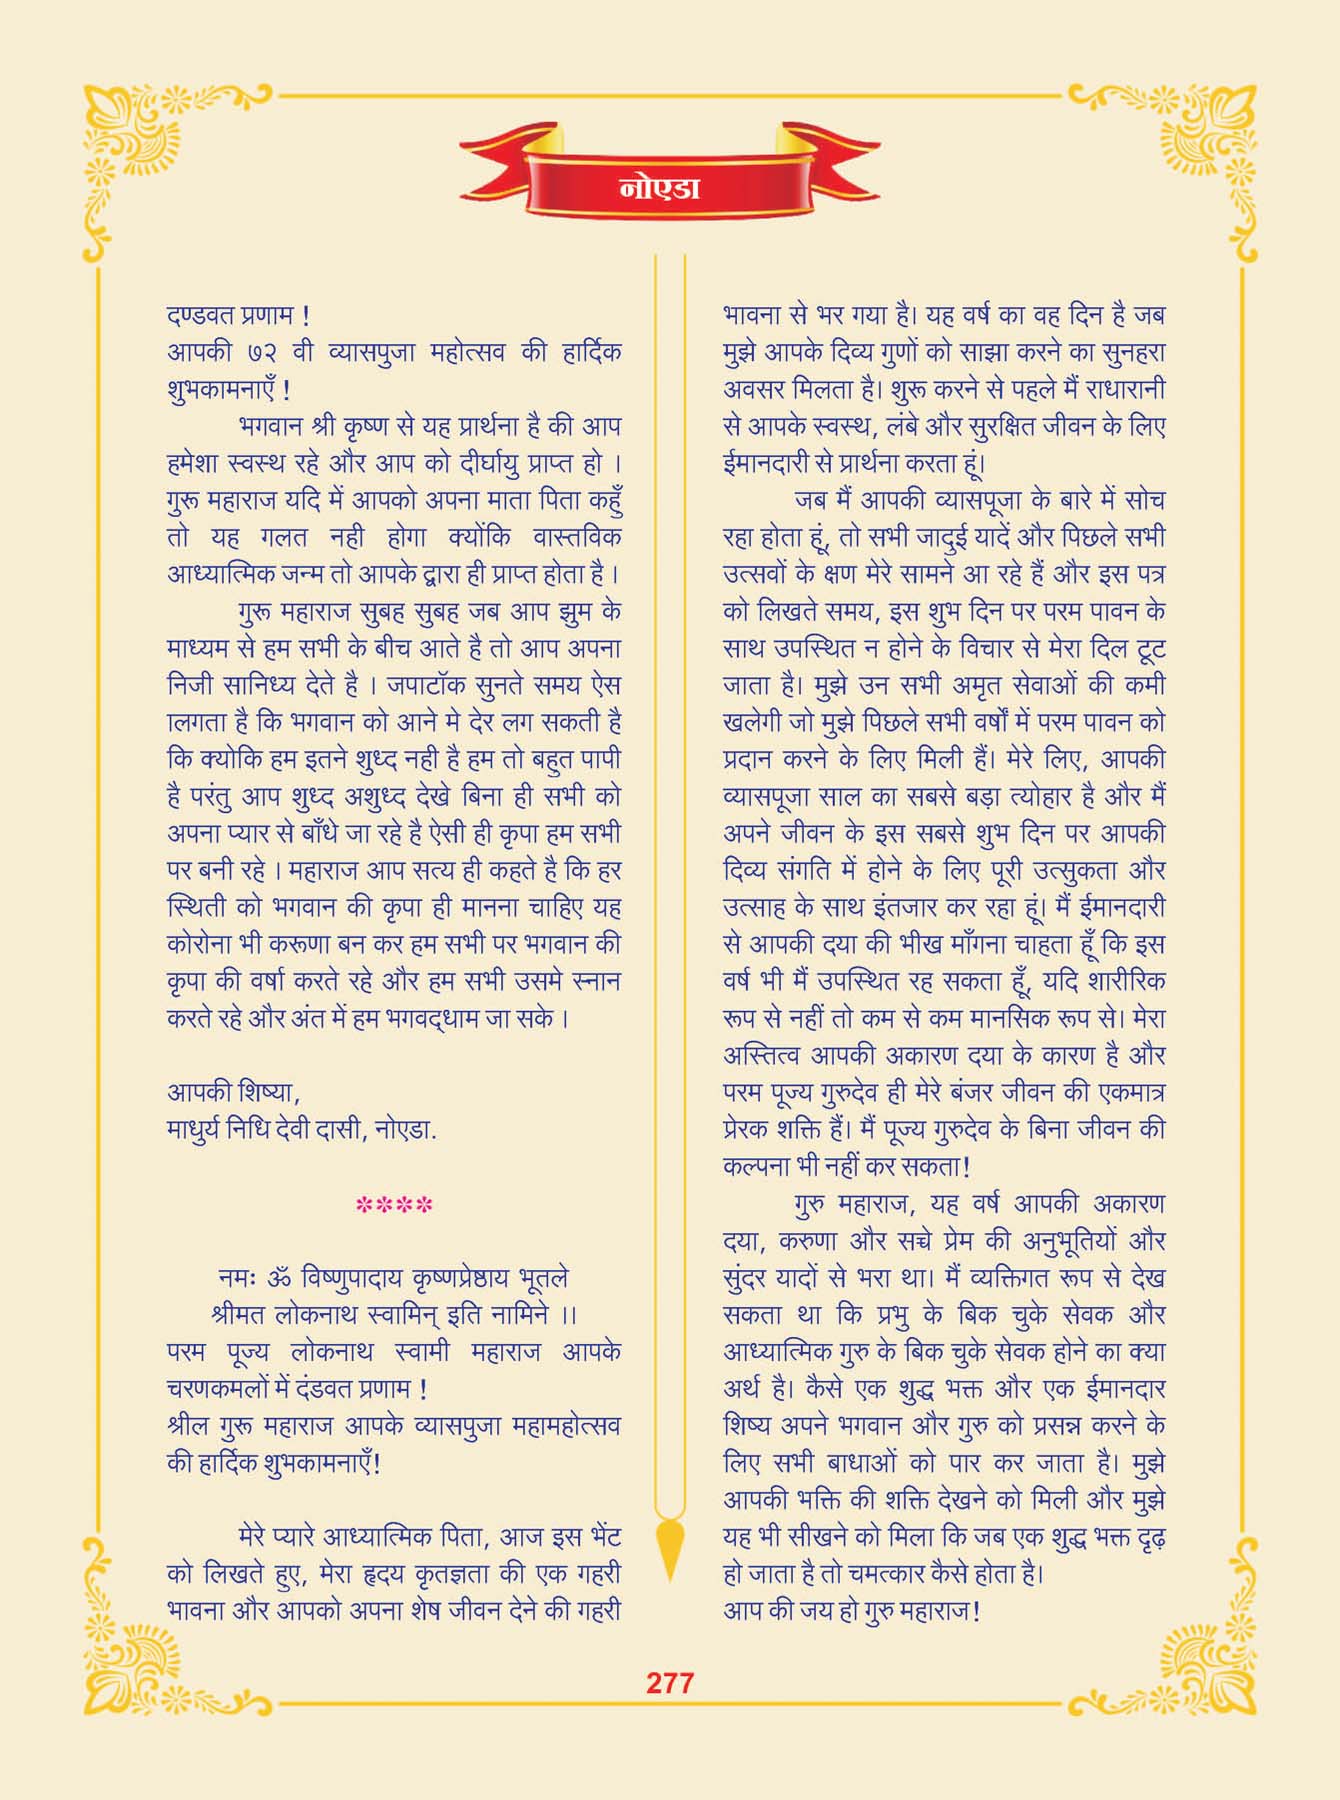 नोएडा
दण्डवत प्रणाम !
आपकी ७२ वी व्यासपुजा महोत्सव की हार्दिक
शुभकामनाएँ !
भगवान श्री कृष्ण से यह प्रार्थना है की आप
हमेशा स्वस्थ रहे और आप को दीर्घायु प्राप्त हो ।
गुरू महाराज यदि में आपको अपना माता पिता कहुँ
तो यह गलत नही होगा क्योंकि वास्तविक
आध्यात्मिक जन्म तो आपके द्वारा ही प्राप्त होता है ।
गुरू महाराज सुबह सुबह जब आप झुम के
माध्यम से हम सभी के बीच आते है तो आप अपना
निजी सानिध्य देते है । जपाटॉक सुनते समय ऐस
ालगता है कि भगवान को आने मे देर लग सकती है
कि क्योकि हम इतने शुध्द नही है हम तो बहुत पापी
है परंतु आप शुध्द अशुध्द देखे बिना ही सभी को
अपना प्यार से बाँधे जा रहे है ऐसी ही कृपा हम सभी
पर बनी रहे । महाराज आप सत्य ही कहते है कि हर
स्थिती को भगवान की कृपा ही मानना चाहिए यह
कोरोना भी करूणा बन कर हम सभी पर भगवान की
कृपा की वर्षा करते रहे और हम सभी उसमे स्नान
करते रहे और अंत में हम भगवद्धाम जा सके ।
आपकी शिष्या,
माधुर्य निधि देवी दासी, नोएडा.
****
नमः ॐ विष्णुपादाय कृष्णप्रेष्ठाय भूतले
श्रीमत लोकनाथ स्वामिन् इति नामिने ।।
परम पूज्य लोकनाथ स्वामी महाराज आपके
चरणकमलों में दंडवत प्रणाम !
श्रील गुरू महाराज आपके व्यासपुजा महामहोत्सव
की हार्दिक शुभकामनाएँ!
मेरे प्यारे आध्यात्मिक पिता, आज इस भेंट
को लिखते हुए, मेरा हृदय कृतज्ञता की एक गहरी
भावना और आपको अपना शेष जीवन देने की गहरी
भावना से भर गया है। यह वर्ष का वह दिन है जब
मुझे आपके दिव्य गुणों को साझा करने का सुनहरा
अवसर मिलता है। शुरू करने से पहले मैं राधारानी
से आपके स्वस्थ, लंबे और सुरक्षित जीवन के लिए
ईमानदारी से प्रार्थना करता हूं।
जब मैं आपकी व्यासपूजा के बारे में सोच
रहा होता हूं, तो सभी जादुई यादें और पिछले सभी
उत्सवों के क्षण मेरे सामने आ रहे हैं और इस पत्र
को लिखते समय, इस शुभ दिन पर परम पावन के
साथ उपस्थित न होने के विचार से मेरा दिल टूट
जाता है। मुझे उन सभी अमृत सेवाओं की कमी
खलेगी जो मुझे पिछले सभी वर्षों में परम पावन को
प्रदान करने के लिए मिली हैं। मेरे लिए, आपकी
व्यासपूजा साल का सबसे बड़ा त्योहार है और मैं
अपने जीवन के इस सबसे शुभ दिन पर आपकी
दिव्य संगति में होने के लिए पूरी उत्सुकता और
उत्साह के साथ इंतजार कर रहा हूं। मैं ईमानदारी
से आपकी दया की भीख माँगना चाहता हूँ कि इस
वर्ष भी मैं उपस्थित रह सकता हूँ, यदि शारीरिक
रूप से नहीं तो कम से कम मानसिक रूप से। मेरा
अस्तित्व आपकी अकारण दया के कारण है और
परम पूज्य गुरुदेव ही मेरे बंजर जीवन की एकमात्र
प्रेरक शक्ति हैं। मैं पूज्य गुरुदेव के बिना जीवन की
कल्पना भी नहीं कर सकता!
गुरु महाराज, यह वर्ष आपकी अकारण
दया, करुणा और सच्चे प्रेम की अनुभूतियों और
सुंदर यादों से भरा था। मैं व्यक्तिगत रूप से देख
सकता था कि प्रभु के बिक चुके सेवक और
आध्यात्मिक गुरु के बिक चुके सेवक होने का क्या
अर्थ है। कैसे एक शुद्ध भक्त और एक ईमानदार
शिष्य अपने भगवान और गुरु को प्रसन्न करने के
लिए सभी बाधाओं को पार कर जाता है। मुझे
आपकी भक्ति की शक्ति देखने को मिली और मुझे
यह भी सीखने को मिला कि जब एक शुद्ध भक्त दृढ़
हो जाता है तो चमत्कार कैसे होता है।
आप की जय हो गुरु महाराज!
277